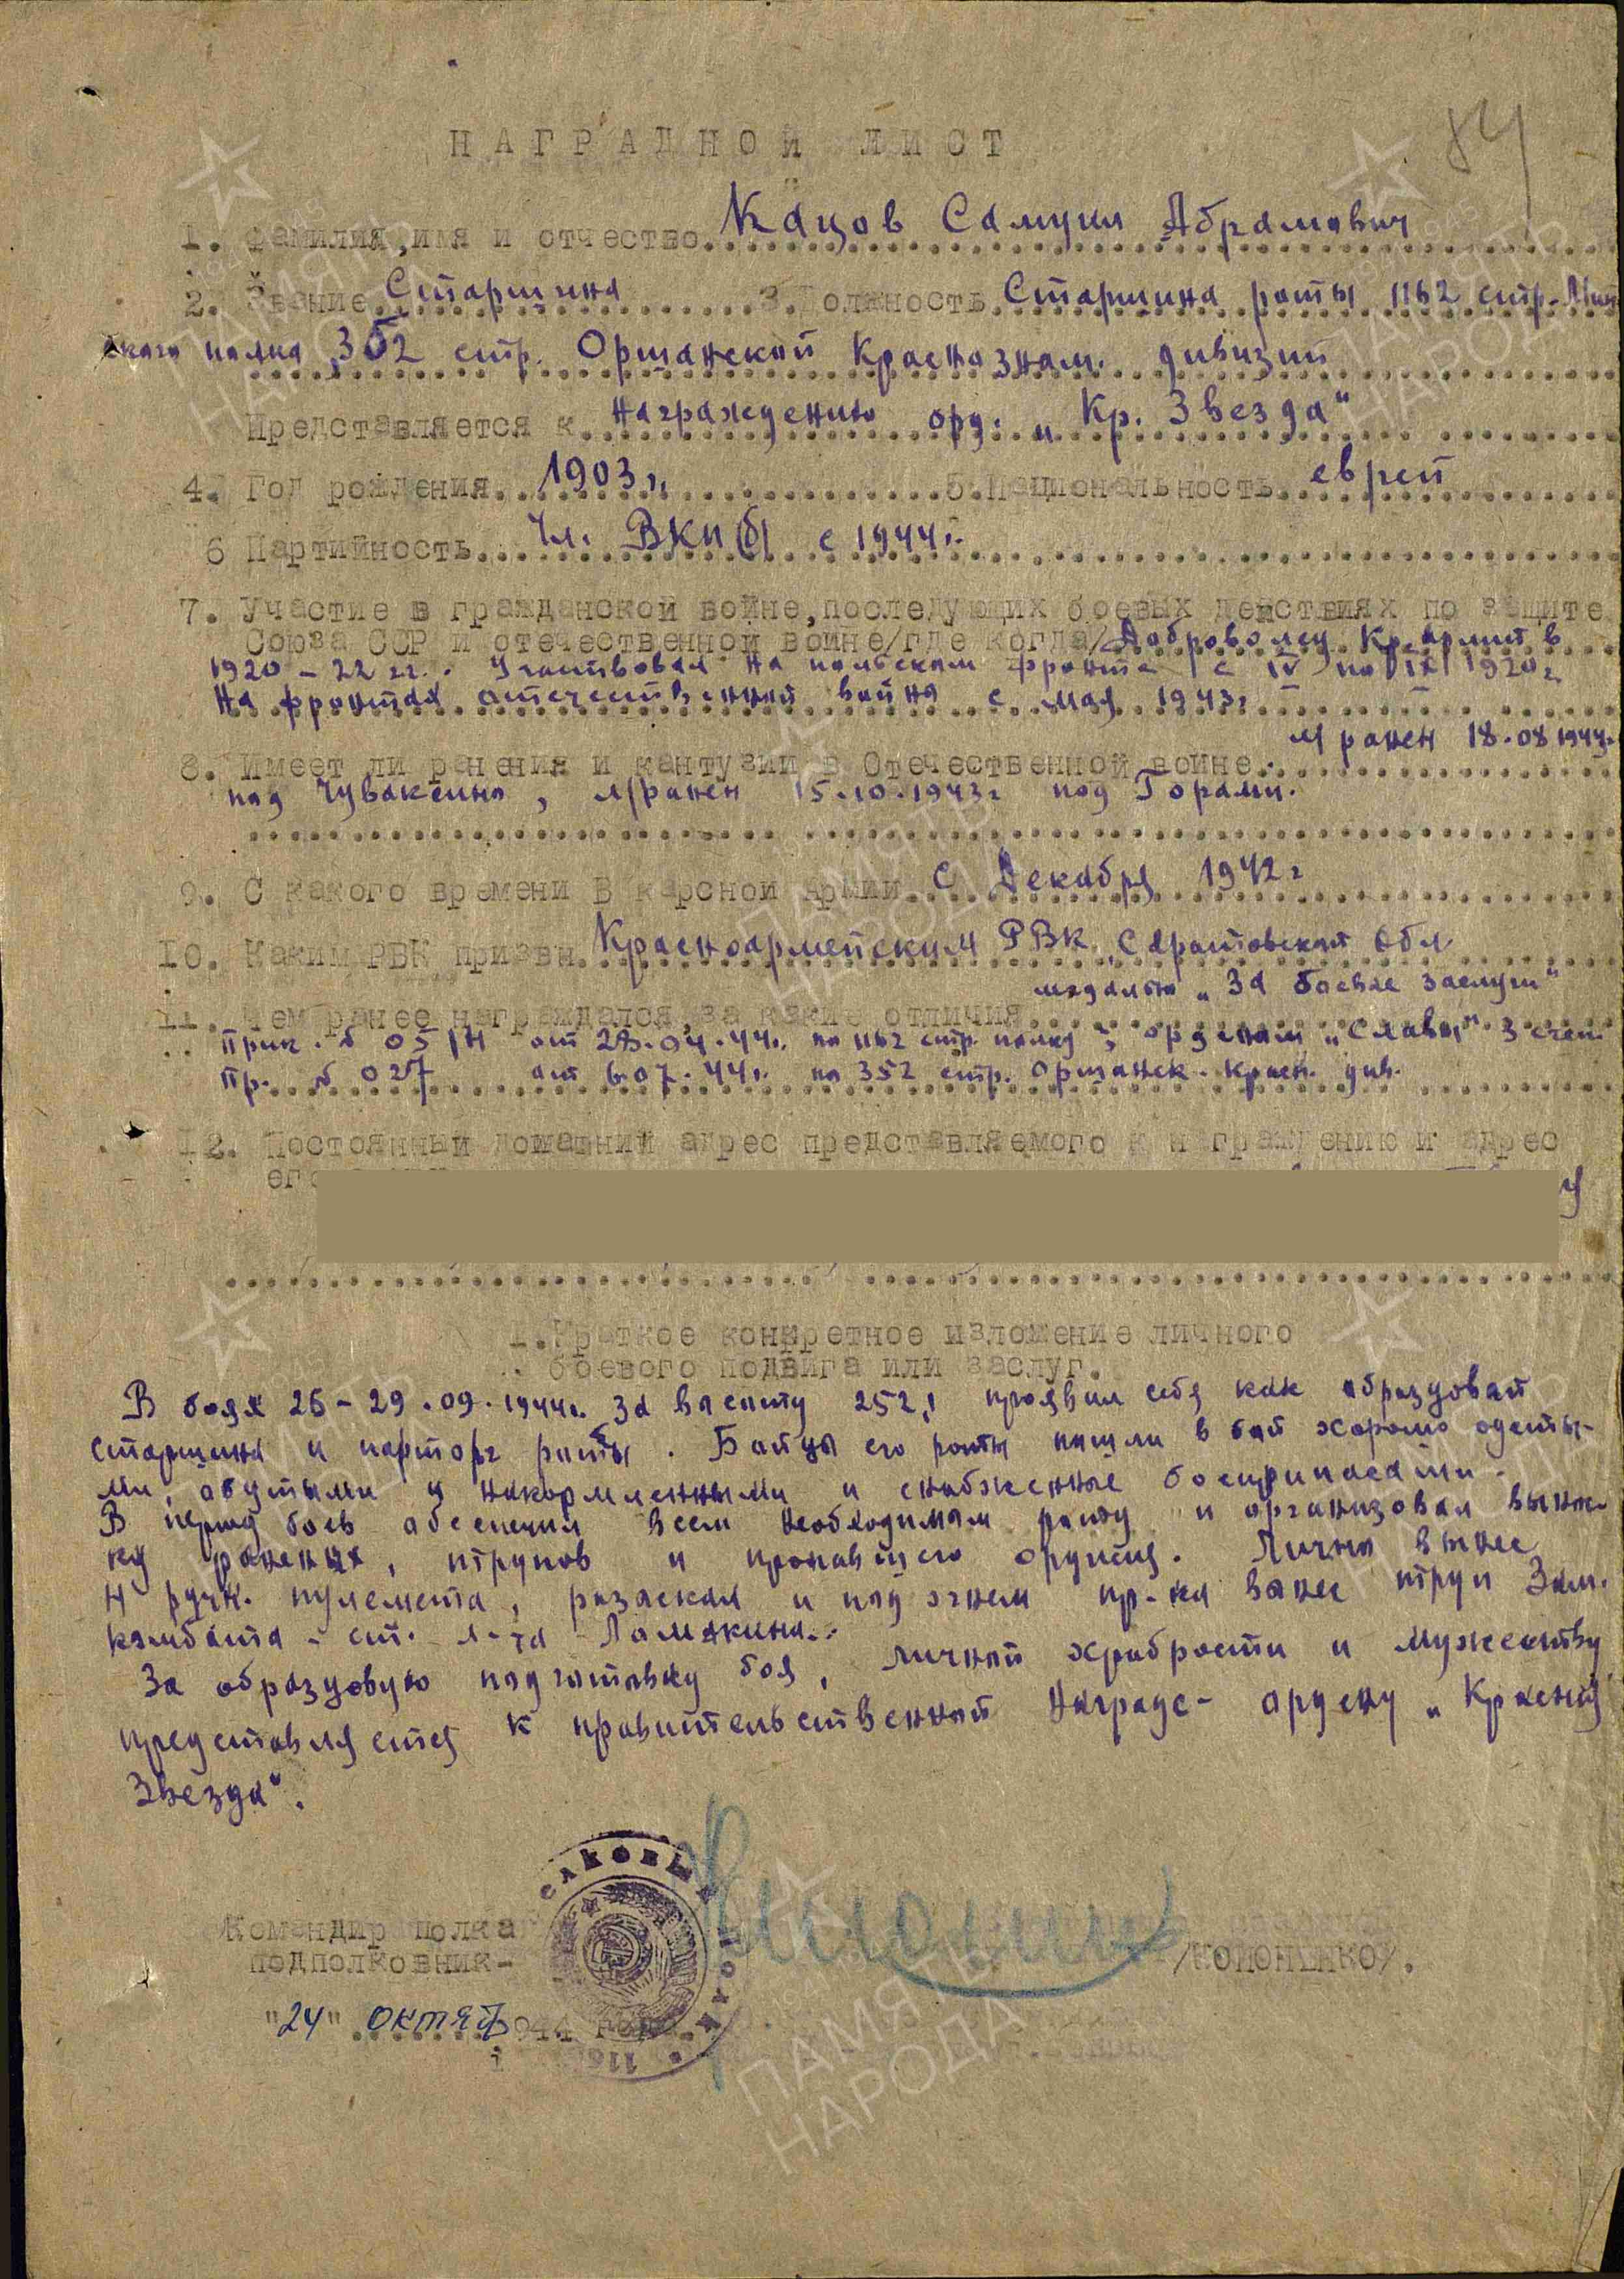 84
НАГРАДНОЙ ЛИСТ
1. Фамилия,имя и отчество Кацов Самуил Абрамович
2. Звание Старшина 3.Должность Старшина роты 1162 стр. Мин
ского полка 352 стр. Оршанской Краснознам. дивизии
Представляется к награждению орд. „Кр. Звезда"
4. Год рождения 1903 г. 5.Национальность еврей
6 Партийность Чл. ВКП(б) с 1944 г.
7. Участие в гражданской войне,последующих боевых действиях по защите
Союза ССР и отечественной войне/где когда/ Доброволец Кр. армии в
1920-22 гг. Участвовал на польском фронте с IV по IX 1920 г.
На фронтах отечественной война с мая 1943 г.
8. Имеет ли ранения и кантузии в Отечественной войне л/ранен 18.08 1943 г.
под Чувакеино, л/ранен 15.10.1943 г под Горами.
9. С какого времени В карсной армии с Декабря 1942 г
10. Каким РВК призвн Красноармейским РВК, Саратовской обл
медалью „За боевые заслуги"
11. Чем ранее награждался,за какие отличия
Прик. № 05/Н от 28.04.44 г. по 1162 стр. полку; орденом „Славы" 3 степ.
Пр. № 027 от 6.07.44 г. по 352 стр. Оршанск. Красн. див.
12. Постоянный домашний адрес представляемого к награждению и адрес
его
1.Краткое конкретное изложение личного
боевого подвига или заслуг.
В боях 26-29.09.1944 г. за высоту 252,1 проявил себя как образцовый
старшина и парторг роты. Бойцы его роты пошли в бой хорошо одеты-
ми, обутыми и накормленными и снабженные боеприпасами.
В период боев обеспечил всем необходимым роту и организовал вынос-
ку раненых, трупов и пропавшего оружия. Лично вынес
4 ручн. пулемета, разыскал и под огнем пр-ка вынес труп Зам.
комбата - ст. л-та Ламакина.
За образцовую подготовку боя, личной храбрости и мужеству
представляется к правительственной награде - ордену „Красная
Звезда".
Командир полка
подполковник-
/КОНОНЕНКО/.
"24" октяб 1944 года